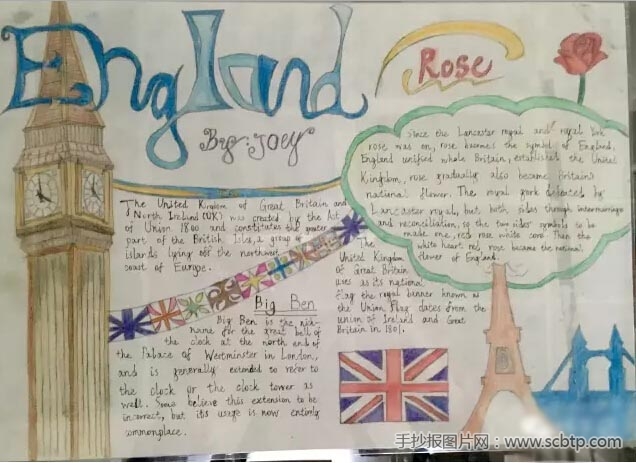 England
By: JOEY
Rose
Since the Lancaster royal and royal York
rose was on, rose becomes the symbol of England.
England unified whole Britain, established the United
Kingdom, rose gradually also became Britain's
national flower. The royal york defeated by
Lancaster royal, but both sides through intermarriage
and reconciliation, so the two sides symbols to be
made one, red rose white core. Then the
white heart red rose became the national
flower of England.
The United Kingdom of Great Britain and
North Ireland (UK) was created by the Act
of Union 1800 and constitutes the greater
part of the British Isles, a group of
islands lying off the northwest
coast of Europe.
The
United Kingdom
of Great Britain
uses as its national
flag the royal banner known as
the Union Flag dates from the
union of Ireland and Great
Britain in 1801.
Big Ben
Big Ben is the nick-
name for the great bell of
the clock at the north end of
the Palace of Westminster in London,
and is generally extended to refer to
the clock or the clock tower as
well. Some believe this extension to be
incorrect, but its usage is now entirely
commonplace.
手抄报图片网：www.scbtp.com